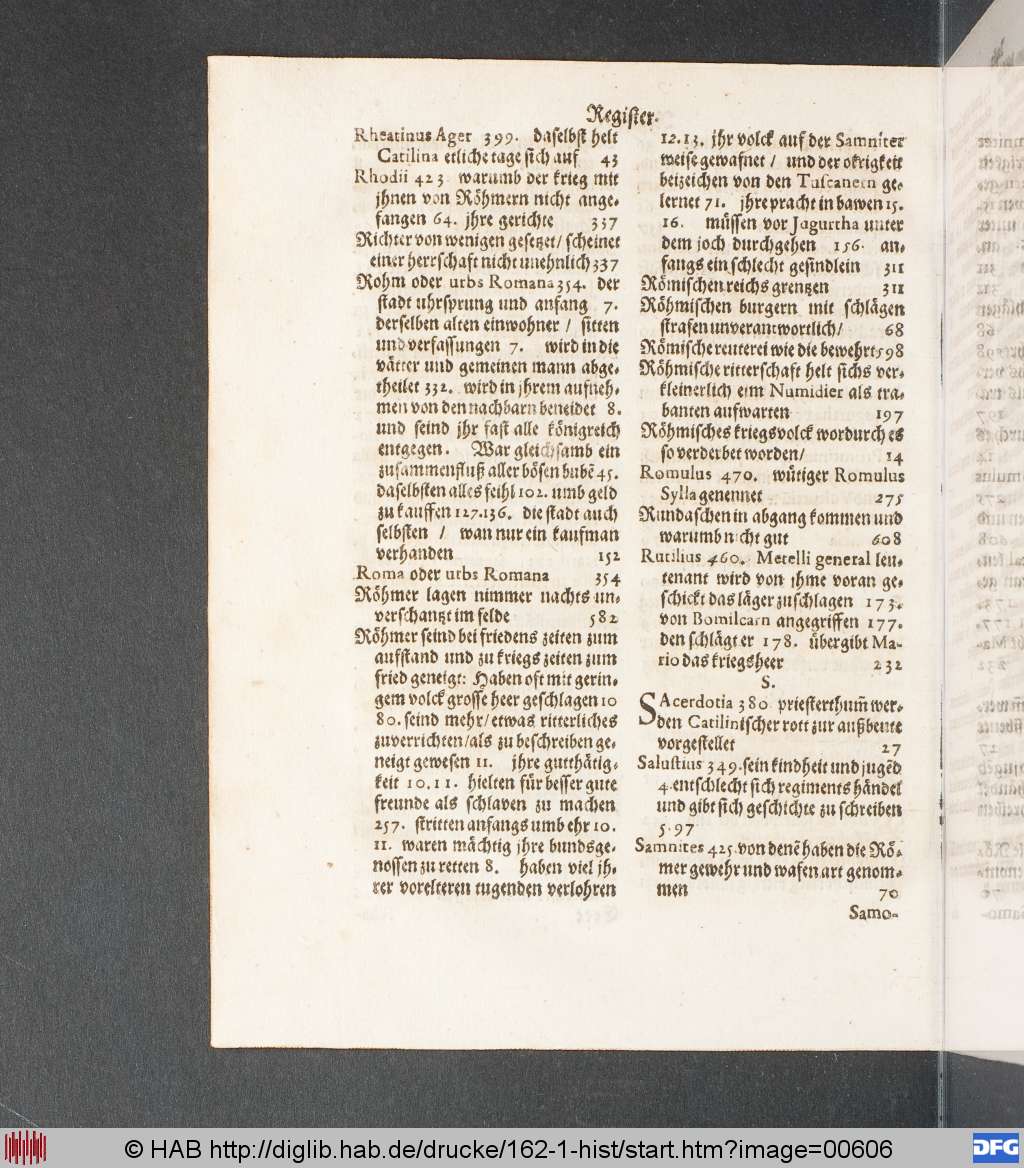 Register.
Rheatinus Ager 399. daselbst helt
Catilina etliche tage sich auf 43
Rhodii 423 warumb der krieg mit
jhnen von Röhmern nicht ange-
fangen 64. jhre gerichte 337
Richter von wenigen gesetzet/ scheinet
einer herrschaft nicht unehnlich 337
Rohm oder urbs Romana 354. der
stadt uhrsprung und anfang 7.
derselben alten einwohner / sitten
und verfassungen 7. wird in die
vätter und gemeinen mann abge-
theilet 332. wird in jhrem aufneh-
men von den nachbarn beneidet 8.
und seind jhr fast alle königreich
entgegen. War gleichsamb ein
zusammenfluß aller bösen bubē 45.
daselbsten alles feihl 102. umb geld
zu kauffen 127.136. die stadt auch
selbsten / wan nur ein kaufman
verhanden 152
Roma oder urbs Romana 354
Röhmer lagen nimmer nachts un-
verschantzt im felde 582
Röhmer seind bei friedens zeiten zum
aufstand und zu kriegs zeiten zum
fried geneigt: Haben oft mit gerin-
gem volck grosse heer geschlagen 10
80. seind mehr/ etwas ritterliches
zuverrichten/als zu beschreiben ge-
neigt gewesen 11. jhre gutthätig-
keit 10.11. hielten für besser gute
freunde als schlaven zu machen
257. stritten anfangs umb ehr 10.
11. waren mächtig jhre bundsge-
nossen zu retten 8. haben viel jh-
rer vorelteren tugenden verlohren
12.13. jhr volck auf der Samniter
weise gewafnet / und der okrigkeit
beizeichen von den Tuscanern ge-
lernet 71. jhre pracht in bawen 15.
16. müssen vor Jugurtha unter
dem joch durchgehen 156. an-
fangs ein schlecht gesindlein 311
Römischen reichs grentzen 311
Röhmischen burgern mit schlägen
strafen unverantwortlich/ 68
Römische reuterei wie die bewehrt 598
Röhmische ritterschaft helt sichs ver-
kleinerlich eim Numidier als tra-
banten aufwarten 197
Röhmisches kriegsvolck wordurch es
so verderbet worden/ 14
Romulus 470. wütiger Romulus
Sylla genennet 275
Rundaschen in abgang kommen und
warumb nicht gut 608
Rutilius 460. Metelli general leu-
tenant wird von jhme voran ge-
schickt das läger zuschlagen 173.
von Bomilcarn angegriffen 177.
den schlägt er 178. übergibt Ma-
rio das kriegsheer 232
S.
SAcerdotia 380 priesterthum̃ wer-
den Catilinischer rott zur außbeute
vorgestellet 27
Salustius 349. sein kindheit und jugēd
4. entschlecht sich regiments händel
und gibt sich geschichte zu schreiben
5.97
Samnites 425. von denē haben die Rö-
mer gewehr und wafen art genom-
men 70
Samo-
© HAB http://diglib.hab.de/drucke/162-1-hist/start.htm?image=00606
DFG